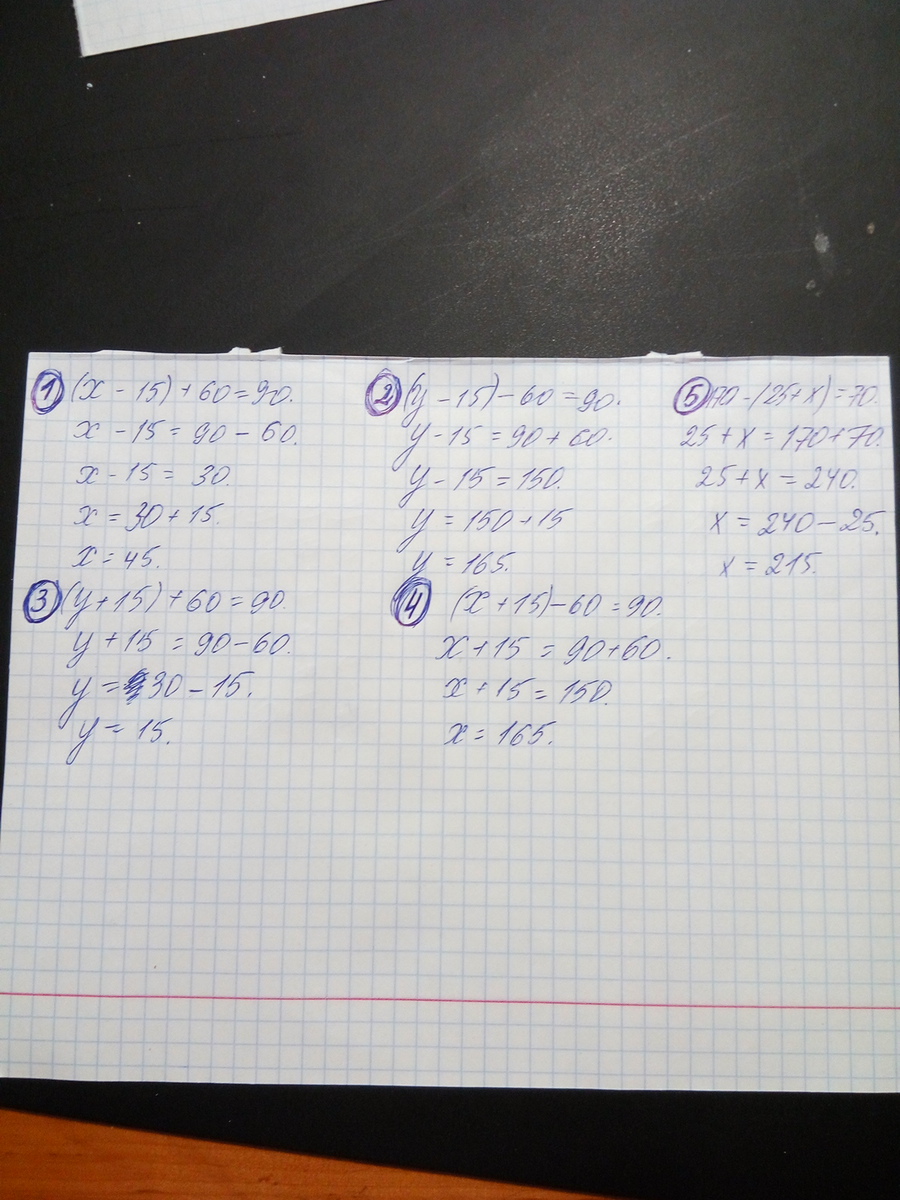 ① (x - 15) + 60 = 90.
x - 15 = 90 - 60.
x - 15 = 30.
x = 30 + 15.
x = 45.
② (y - 15) - 60 = 90.
y - 15 = 90 + 60.
y - 15 = 150.
y = 150 + 15
y = 165.
⑤ 170 - (25 + x) = 70.
25 + x = 170 + 70.
25 + x = 240.
x = 240 - 25.
x = 215.
③ (y + 15) + 60 = 90.
y + 15 = 90 - 60.
y = 30 - 15.
y = 15.
④ (x + 15) - 60 = 90.
x + 15 = 90 + 60.
x + 15 = 150.
x = 165.